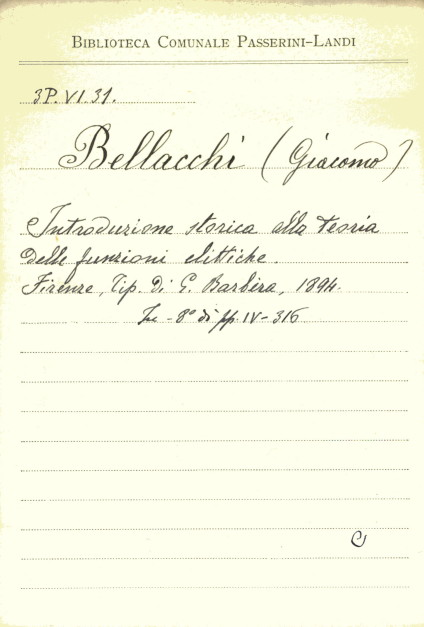 BIBLIOTECA COMUNALE PASSERINI-LANDI
3P.VI.31.
Bellacchi (Giacomo)
Introduzione storica alla teoria
delle funzioni elittiche.
Firenze, Tip. di G. Barbèra, 1894.
In-8° di pp. IV-316